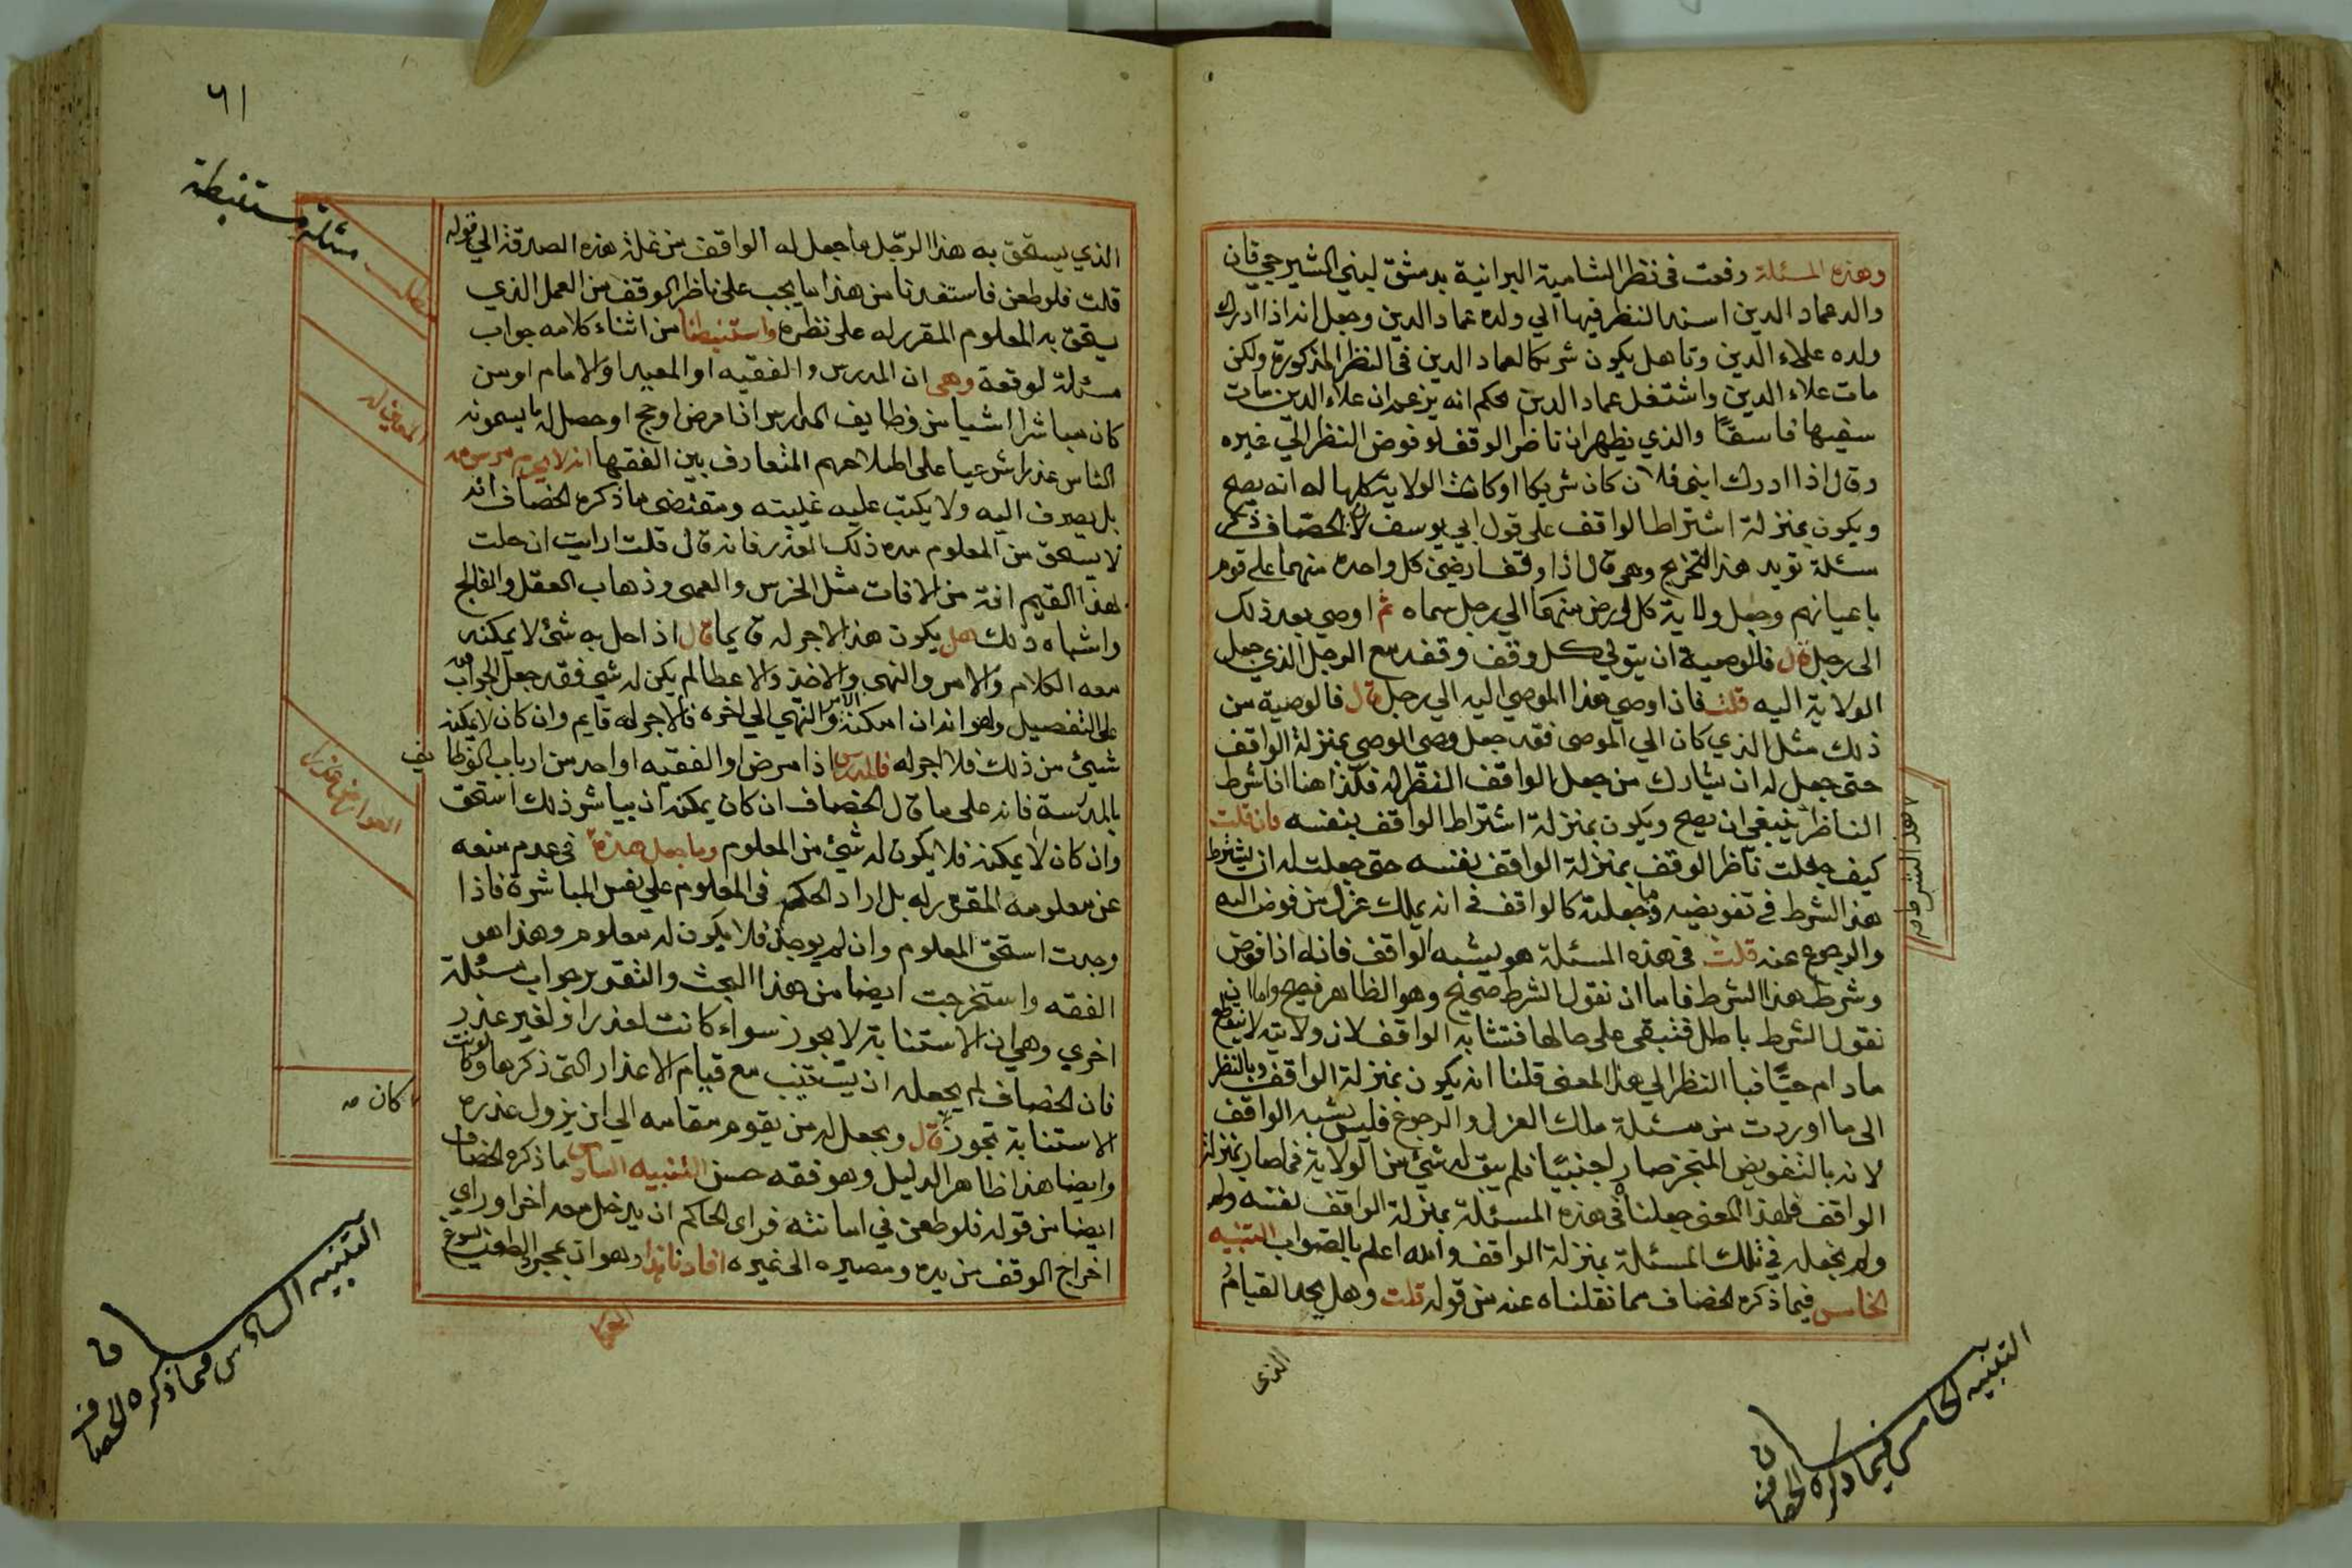 وهذه المسئلة رفعت في نظر الشامية البرانية بدمشق لبني الشيرجي فان
والد عماد الدين اسند النظر فيها الي ولده عماد الدين وجعل انه اذا ادرك
ولده علاء الدين وتاهل يكون شريكا لعماد الدين في النظر المذكورة ولكن
مات علاء الدين واشتغل عماد الدين بحكم انه يزعم ان علاء الدين مات
سفيها فاسقًا والذي يظهر ان ناظر الوقف لو فوض النظر الي غيره
وقال اذا ادرك ابني فلان كان شريكا او كانت الولاية كلها له انه يصح
ويكون بمنزلة اشتراط الواقف على قول ابي يوسف لان الخصاف ذكر
مسئلة تويد هذا التخريج وهي قال اذا وقف ارضين كل واحدة منهما على قوم
باعيانهم وجعل ولاية كل ارض منهما الي رجل سماه ثم اوصي بعد ذلك
الى رجل قال فالوصية ان يتولي كل وقف وقفه مع الرجل الذي جعل
الولاية اليه قلت فاذا اوصي هذا الموصي اليه الي رجل قال فالوصية من
ذلك مثل الذي كان الي الموصى فقد جعل وصي الوصي بمنزلة الواقف
حتى جعل له ان يشارك من جعل الواقف النظر له فكذا هنا اذا شرط
الناظر ينبغي ان يصح ويكون بمنزلة اشتراط الواقف بنفسه فان قلت
كيف جعلت ناظر الوقف بمنزلة الواقف نفسه حتى جعلت له ان يشترط
هذا الشرط في تفويضه وما جعلته كالواقف في انه يملك عزل من فوض اليه
والرجوع عنه قلت في هذه المسئلة هو يشبه الواقف فانه اذا فوض
وشرط هذا الشرط فاما ان نقول الشرط صحيح وهو الظاهر فيصح واما ان
نقول الشرط باطل فتبقى على حالها فتشابه الواقف لان ولايته لا تنقطع
مادام حيًّا فبا النظر الي هذا المعنى قلنا انه يكون بمنزلة الواقف وبالنظر
الى ما اوردت من مسئلة ملك العزل والرجوع فليس يشبه الواقف
لانه بالتفويض المنجز صار اجنبيًا فلم يبق له شيئ من الولاية فما صار بمنزلة
الواقف فلهذا المعنى جعلناه في هذه المسئلة بمنزلة الواقف نفسه
ولم نجعله في تلك المسئلة بمنزلة الواقف والله اعلم بالصواب التنبيه
الخامس فيما ذكره الخصاف مما نقلناه عنه من قوله قلت وهل يحد القيام
الذي
التنبيه الخامس فيما ذكره الخصاف
٦١
مسئلة مستنبطة
الذي يستحق به هذا الرجل ما جعل له الواقف من غلة هذه الصدقة الي قوله
قلت فلو طعن فاستفدنا من هذا ما يجب على ناظر الوقف من العمل الذي
يستحق به المعلوم المقرر له على نظره واستنبطنا من اثناء كلامه جواب
مسئلة لوقعة وهي ان المدرس والفقيه او المعيد او الامام او من
كان مباشرا شيا من وظايف المدارس اذا مرض او حج او حصل له ما يسمونه
الناس عذرا شرعيا على اطلاحهم المتعارف بين الفقها انه لا يحرم
بل يصرف اليه ولا يكتب عليه غيبته ومقتضى ما ذكره الخصاف انه
لا يستحق من المعلوم مدة ذلك العذر فانه قال قلت ارايت ان حلت
بهذا القيم افة من الافات مثل الخرس والعمى وذهاب العقل والفالج
واشباه ذلك هل يكون هذا الاجر له قايما قال اذا حل به شئ لا يمكنه
معه الكلام والامر والنهى والاخذ والاعطا لم يكن له شي فقد جعل الجواب
على التفصيل وهو انه ان امكنه الامر والنهي الي اخره فالاجر له قايم وان كان لا يمكنه
شيئ من ذلك فلا اجر له فالمدرس اذا مرض او الفقيه او احد من ارباب الوظايف
بالمدرسة فانه على ما قال الخصاف ان كان يمكنه ان يباشر ذلك استحق
وان كان لا يمكنه فلا يكون له شيئ من المعلوم وما جعل هذه في عدم منعه
عن معلومه المقرر له بل اراد الحكم في المعلوم علي نفس المباشرة فاذا
وجدت استحق المعلوم وان لم يوجد فلا يكون له معلوم وهذا هو
الفقه واستخرجت ايضا من هذا البحث والتقرير جواب مسئلة
اخري وهي ان الاستنابة لا يجوز سواء كانت لعذر او لغير عذر
فان الخصاف لم يجعل له ان يستنيب مع قيام الاعذار التي ذكرها ولو كانت
الاستنابة تجوز قال ويجعل له من يقوم مقامه الي ان يزول عذره
وايضا هذا ظاهر الدليل وهو فقه حسن التنبيه السادس ما ذكره الخصاف
ايضا من قوله فلو طعن في امانته فراى الحاكم ان يدخل معه اخر او راي
اخراج الوقف من يده ومصيره الى غيره افادنا هذا وهو ان بمجرد الطعن يسوغ
كان صه
التنبيه السادس فيما ذكره الخصاف